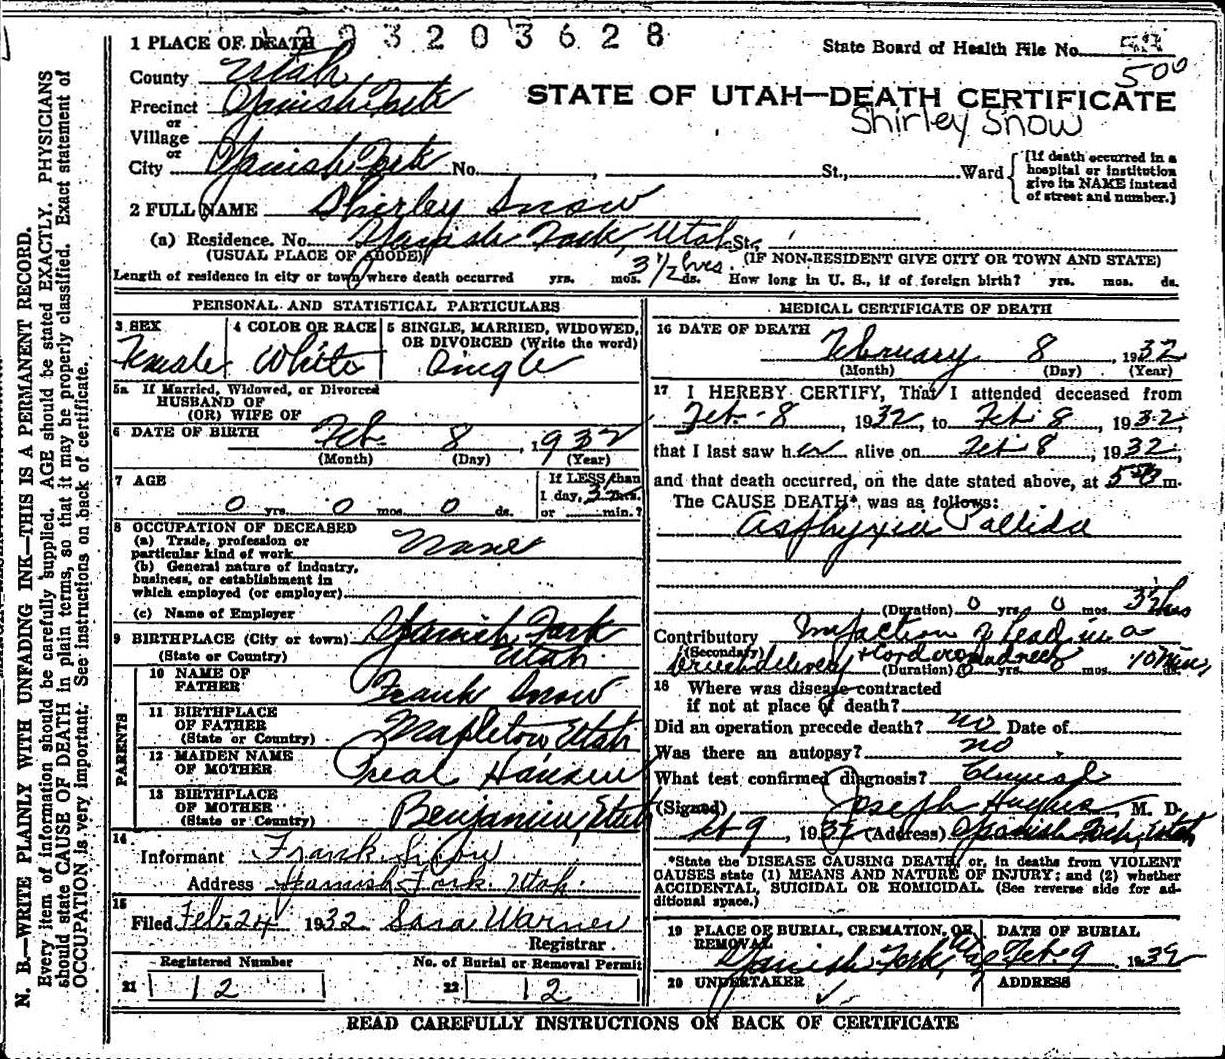 1 PLACE OF DEATH 3203628
State Board of Health File No. 53
500
County Utah
STATE OF UTAH—DEATH CERTIFICATE
Shirley Snow
Precinct Spanish Fork
or
Village
or
City Spanish Fork No. , St., Ward {[If death occurred in a hospital or institution give its NAME instead of street and number.]
2 FULL NAME Shirley Snow
(a) Residence. No. Spanish Fork, Utah St.,
(USUAL PLACE OF ABODE) (IF NON-RESIDENT GIVE CITY OR TOWN AND STATE)
Length of residence in city or town where death occurred yrs. mos. 3 1/2 hrs. ds. How long in U. S., if of foreign birth? yrs. mos. ds.
PERSONAL AND STATISTICAL PARTICULARS
3 SEX Female
4 COLOR OR RACE White
5 SINGLE, MARRIED, WIDOWED, OR DIVORCED (Write the word) Single
5a If Married, Widowed, or Divorced
HUSBAND OF
(OR) WIFE OF
6 DATE OF BIRTH Feb. 8, 1932
(Month) (Day) (Year)
7 AGE 0 yrs. 0 mos. 0 ds.
If LESS than
1 day, 3 1/2 hrs.
or min.?
8 OCCUPATION OF DECEASED
(a) Trade, profession or
particular kind of work None
(b) General nature of industry,
business, or establishment in
which employed (or employer)
(c) Name of Employer
9 BIRTHPLACE (City or town) Spanish Fork
(State or Country) Utah
PARENTS
10 NAME OF
FATHER Frank Snow
11 BIRTHPLACE
OF FATHER
(State or Country) Mapleton, Utah
12 MAIDEN NAME
OF MOTHER Preal Hansen
13 BIRTHPLACE
OF MOTHER
(State or Country) Benjamin, Utah
14
Informant Frank Snow
Address Spanish Fork. Utah.
15
Filed Feb. 24 1932 Sara Warner
Registrar.
Registered Number
21 12
No. of Burial or Removal Permit
22 12
MEDICAL CERTIFICATE OF DEATH
16 DATE OF DEATH
February 8, 1932
(Month) (Day) (Year)
17 I HEREBY CERTIFY, That I attended deceased from
Feb. 8, 1932, to Feb 8, 1932,
that I last saw her alive on Feb 8, 1932;
and that death occurred, on the date stated above, at m.
The CAUSE DEATH*, was as follows:
Asphyxia Pallida
(Duration) 0 yrs. 0 mos. 3 1/2 hrs
Contributory Impaction of head in a
(Secondary)
breech delivery + Cord
(Duration) 0 yrs. mos. 10 Min. ds.
18 Where was disease contracted
if not at place of death?
Did an operation precede death? no Date of
Was there an autopsy? no
What test confirmed diagnosis? Clinical
(Signed) Joseph Hughes, M. D.
Feb 9, 1932 (Address) Spanish Fork, Utah
*State the DISEASE CAUSING DEATH, or, in deaths from VIOLENT
CAUSES state (1) MEANS AND NATURE OF INJURY; and (2) whether
ACCIDENTAL, SUICIDAL OR HOMICIDAL. (See reverse side for ad-
ditional space.)
19 PLACE OF BURIAL, CREMATION, OR
REMOVAL
Spanish Fork, Utah
DATE OF BURIAL
Feb. 9 1932
20 UNDERTAKER
ADDRESS
READ CAREFULLY INSTRUCTIONS ON BACK OF CERTIFICATE
N. B.—WRITE PLAINLY WITH UNFADING INK—THIS IS A PERMANENT RECORD.
Every item of information should be carefully supplied. AGE should be stated EXACTLY. PHYSICIANS
should state CAUSE OF DEATH in plain terms, so that it may be properly classified. Exact statement of
OCCUPATION is very important. See instructions on back of certificate.